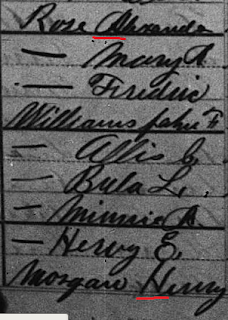 Rose Alexander
— Mary A
— Firdinc
Williams John F
— Allis C,
— Bula L,
— Minnie A.
— Hervy E,
Morgan Henry